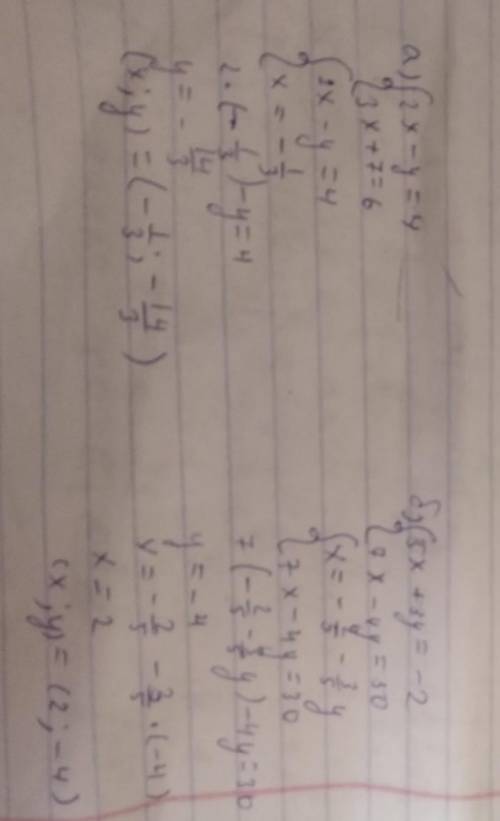 а) {2x - y = 4
{3x + 7 = 6
{2x - y = 4
{x = - 1/3
2 · (- 1/3) - y = 4
y = - 14/3
(x; y) = (- 1/3; - 14/3)
б) {5x + 3y = -2
x - 4y = 30
{x = - 2/5 - 3/5 y
{7x - 4y = 30
7 (- 2/5 - 3/5 y) - 4y = 30
y = - 4
x = - 2/5 - 3/5 · (-4)
x = 2
(x; y) = (2; -4)